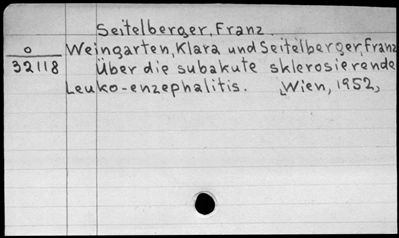 Seitelberger, Franz.
o
32118
Weingarten, Klara und Seitelberger, Franz
Über die subakute sklerosierende
Leuko-enzephalitis. Wien, 1952,